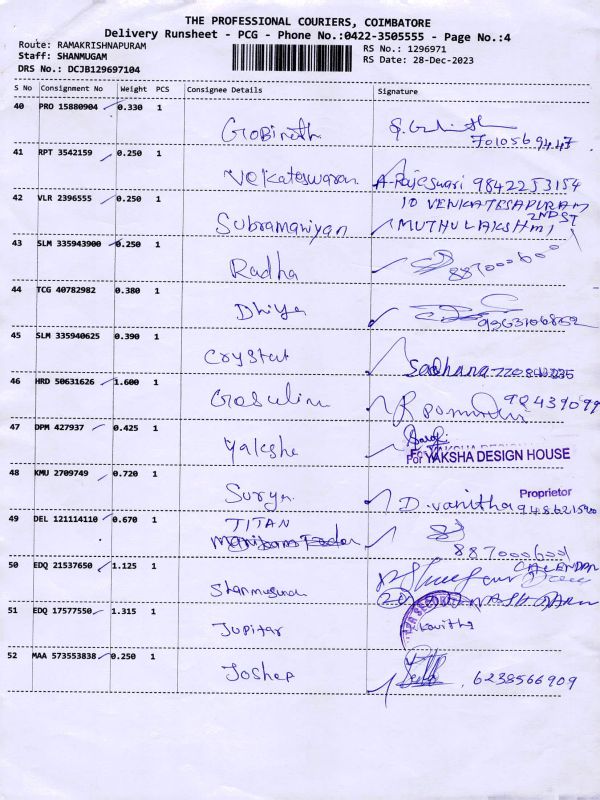 THE PROFESSIONAL COURIERS, COIMBATORE
Delivery Runsheet - PCG - Phone No.:0422-3505555 - Page No.:4
Route: RAMAKRISHNAPURAM RS No.: 1296971
Staff: SHANMUGAM RS Date: 28-Dec-2023
DRS No.: DCJB129697104
S No Consignment No Weight PCS Consignee Details Signature
40 PRO 15880904 0.330 1
Gobinath 7010569447
41 RPT 3542159 0.250 1
Vekateswaran A-Rajeswari 9842253154
42 VLR 2396555 0.250 1 10 VENKATESAPURAM
2ND ST
Subramaniyan MUTHULAKSHMI
43 SLM 335943900 0.250 1
Radha
44 TCG 40782982 0.380 1
Dhiya
45 SLM 335940625 0.390 1
Crystal Sadhana
46 HRD 50631626 1.600 1
47 DPM 427937 0.425 1
Yaksha For YAKSHA DESIGN HOUSE
48 KMU 2709749 0.720 1
Proprietor
Surya D. Vanitha
49 DEL 121114110 0.670 1 TITAN
8870006001
50 EDQ 21537650 1.125 1 CALENDAR
Shanmugam
51 EDQ 17577550 1.315 1
Jupitar Kavitha
52 MAA 573553838 0.250 1
Joshep 6238566909